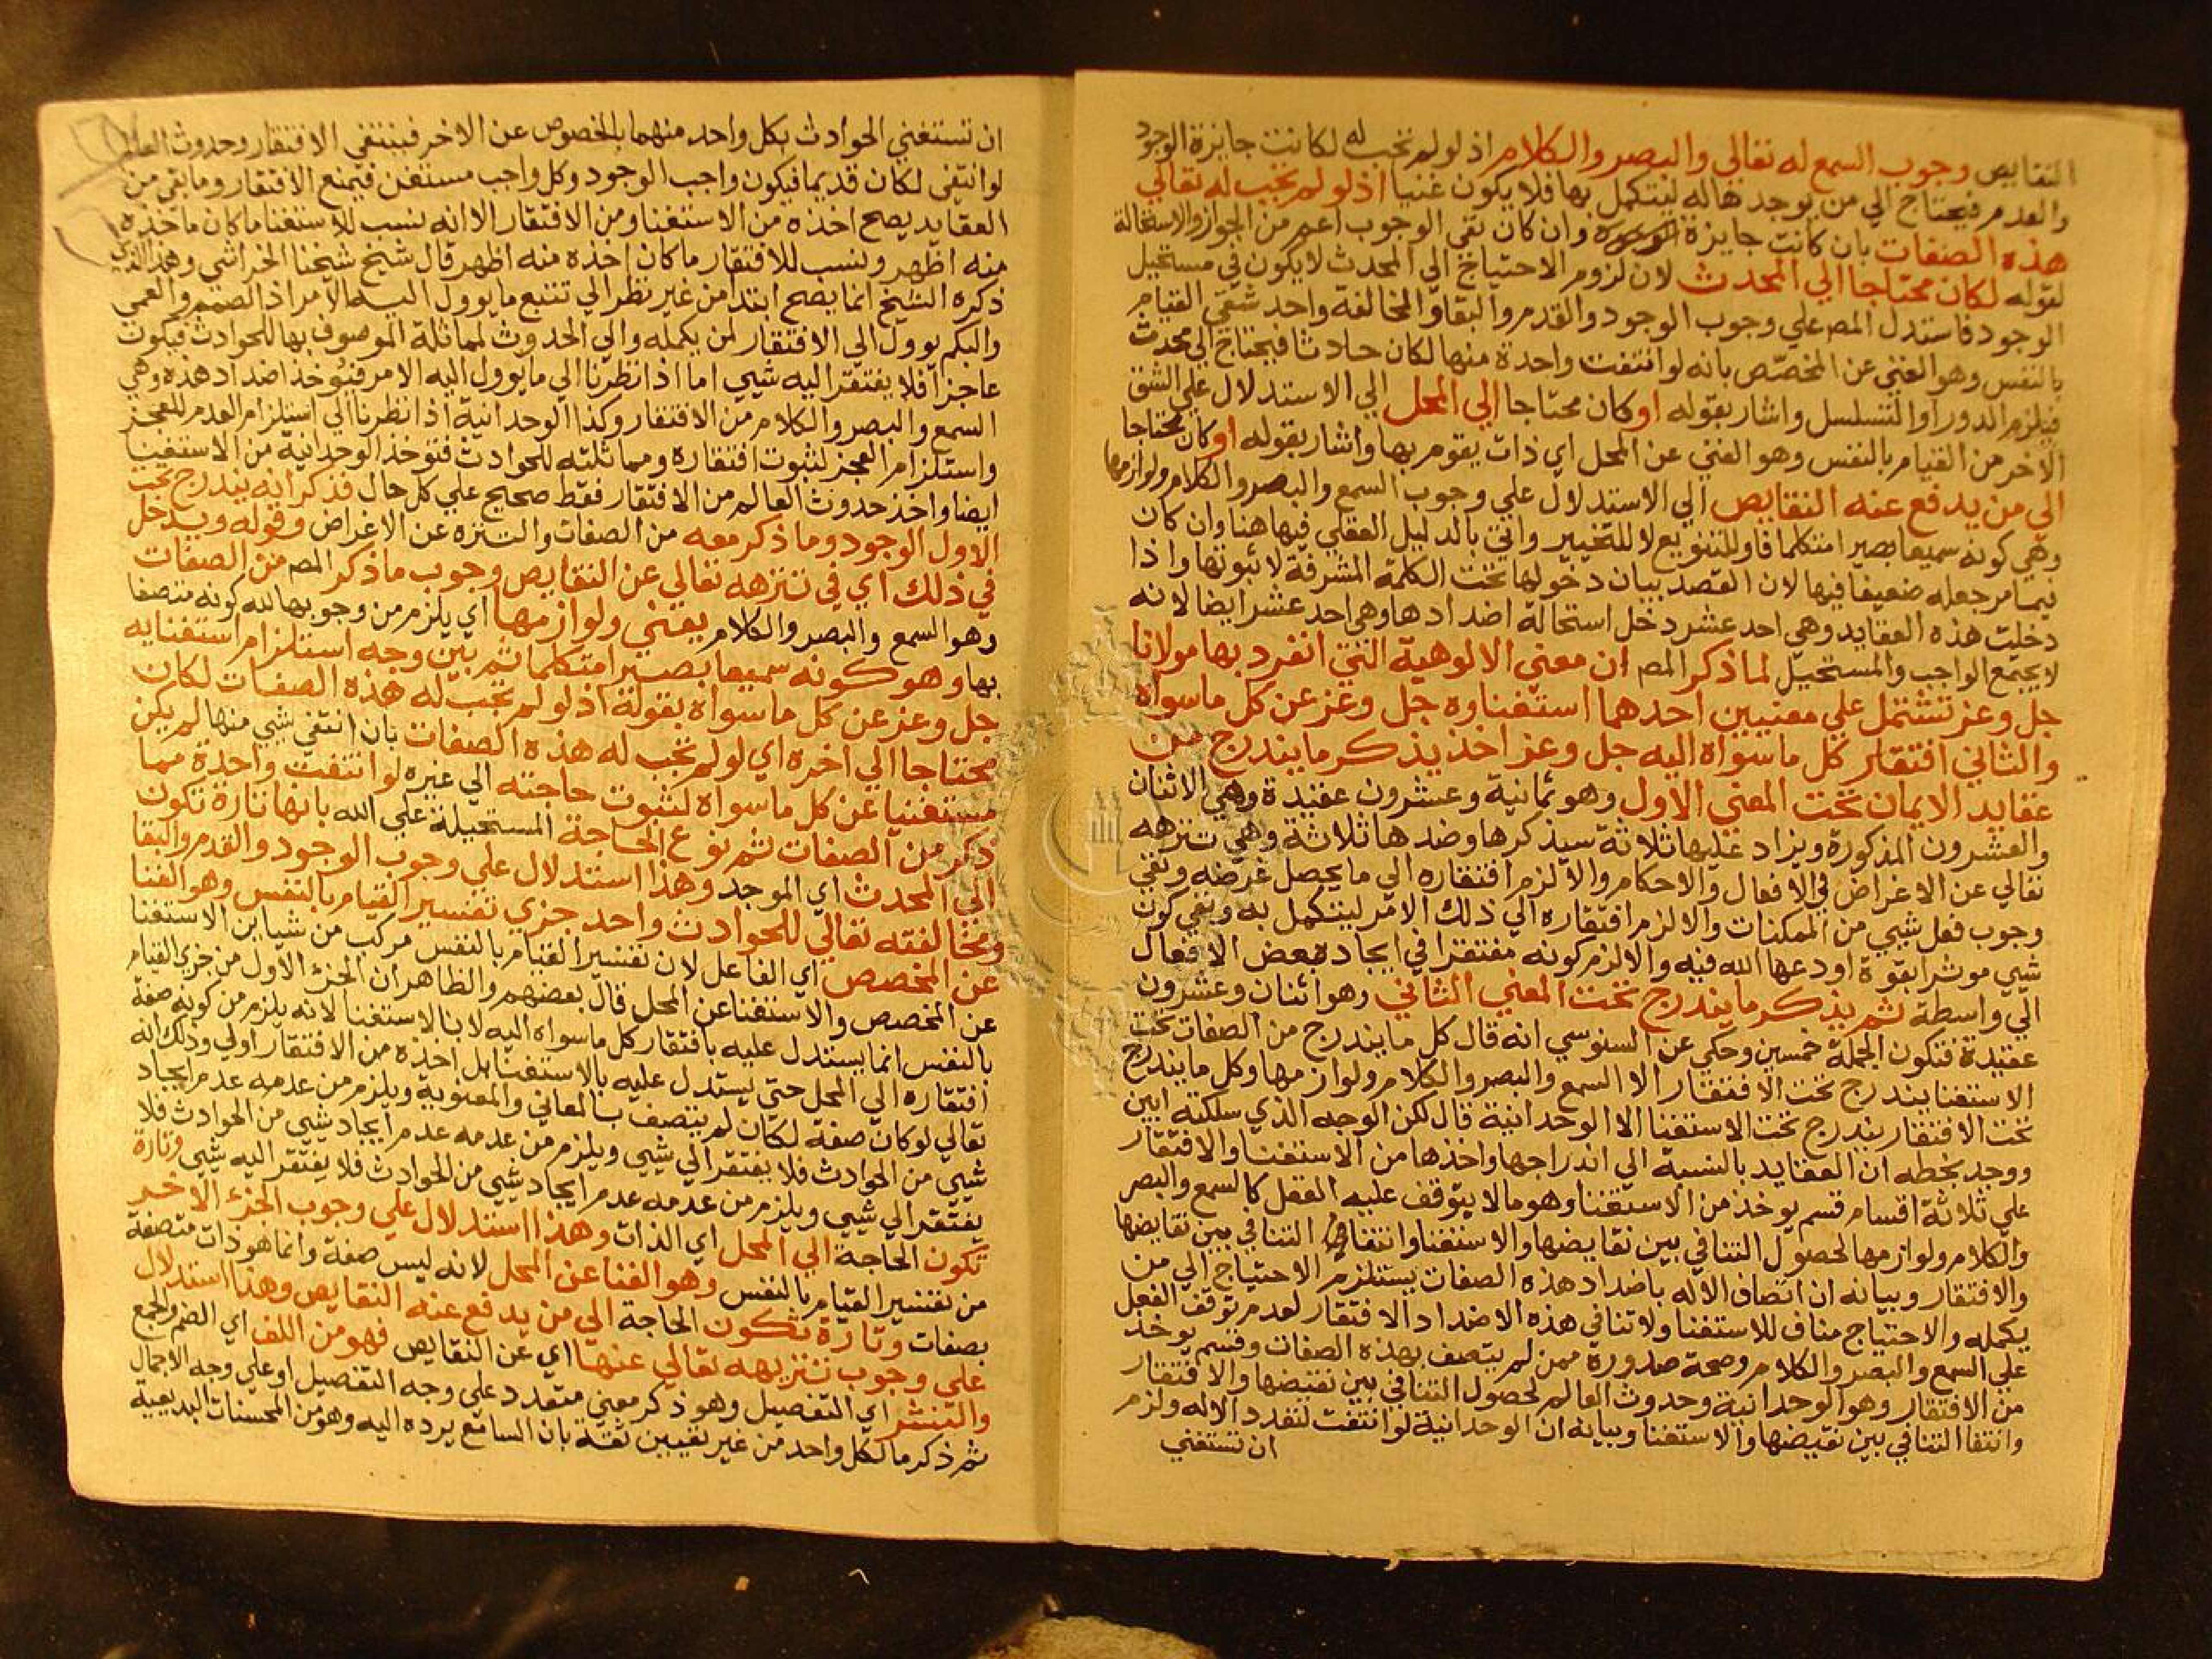 النقايص وجوب السمع له تعالي والبصر والكلام اذ لو لم تجب له لكانت جايزة الوجود
والعدم فيحتاج الي من يوجد هاله ليتكمل بها فلا يكون غنيا اذ لو لم تجب له تعالي
هذه الصفات بان كانت جايزة وان كان نفي الوجوب اعم من الجواز والاستحالة
لقوله لكان محتاجا الي المحدث لان لزوم الاحتياج الي المحدث لا يكون في مستحيل
الوجود فاستدل المص علي وجوب الوجود والقدم والبقا والمخالفة واحد شقي القيام
بالنفس وهو الغني عن المخصص بانه لو انتفت واحدة منها لكان حادثا فيحتاج الي محدث
فيلزم الدور او التسلسل واشار بقوله او كان محتاجا الي المحل الي الاستدلال علي الشق
الاخر من القيام بالنفس وهو الغني عن المحل اي ذات يقوم بها واشار بقوله او كان محتاجا
الي من يدفع عنه النقايص الي الاستدلال علي وجوب السمع والبصر والكلام ولوازمها
وهي كونه سميعا بصيرا متكلما فاو للتنويع لا للتخيير واتي بالدليل العقلي فيها هنا وان كان
فيما مر جعله ضعيفا فيها لان القصد بيان دخولها تحت الكلمة المشرفة لا ثبوتها واذا
دخلت هذه العقايد وهي احد عشر دخل استحالة اضدادها وهي احد عشر ايضا لانه
لا يجتمع الواجب والمستحيل لما ذكر المص ان معني الالوهية التي انفرد بها مولانا
جل وعز تشتمل علي معنيين احدهما استغناوه جل وعز عن كل ما سواه
والثاني افتقار كل ما سواه اليه جل وعز اخذ يذكر ما يندرج من
عقايد الايمان تحت المعني الاول وهو ثمانية وعشرون عقيدة وهي الاثنان
والعشرون المذكورة ويزاد عليها ثلاثة سيذكرها وضدها ثلاثة وهي تنزهه
تعالي عن الاغراض في الافعال والاحكام والا لزم افتقاره الي ما يحصل غرضه ونفي
وجوب فعل شيي من الممكنات والا لزم افتقاره الي ذلك الامر ليتكمل به ونفي كون
شيي موثرا بقوة اودعها الله فيه والا لزم كونه مفتقرا في ايجاده بعض الافعال
الي واسطة ثم يذكر ما يندرج تحت المعني الثاني وهو اثنان وعشرون
عقيدة فتكون الجملة خمسين وحكي عن السنوسي انه قال كل ما يندرج من الصفات تحت
الاستغنا يندرج تحت الافتقار الا السمع والبصر والكلام ولوازمها وكل ما يندرج
تحت الافتقار يندرج تحت الاستغنا الا الوحدانية قال لكن الوجه الذي سلكته ابين
ووجد بخطه ان العقايد بالنسبة الي اندراجها واخذها من الاستغنا والافتقار
علي ثلاثة اقسام قسم يوخذ من الاستغنا وهو ما لا يتوقف عليه الفعل كالسمع والبصر
والكلام ولوازمها لحصول التنافي بين نقايضها والاستغنا وانتفا التنافي بين نقايضها
والافتقار وبيانه ان اتصاف الاله باضداد هذه الصفات يستلزم الاحتياج الي من
يكمله والاحتياج مناف للاستغنا ولا تنافي هذه الاضداد الافتقار لعدم توقف الفعل
علي السمع والبصر والكلام وصحة صدوره ممن لم يتصف بهذه الصفات وقسم يوخذ
من الافتقار وهو الوحدانية وحدوث العالم لحصول التنافي بين نقيضها والافتقار
وانتفا التنافي بين نقيضها والاستغنا وبيانه ان الوحدانية لو انتفت لتعدد الاله ولزم
ان تستغني
ان تستغني الحوادث بكل واحد منهما بالخصوص عن الاخر فينتفي الافتقار وحدوث العالم
لو انتفي لكان قديما فيكون واجب الوجود وكل واجب مستغن فيمنع الافتقار وما بقي من
العقايد يصح اخذه من الاستغنا ومن الافتقار الا انه نسب للاستغنا ما كان ماخذه
منه اظهر ونسب للافتقار ما كان اخذه منه اظهر قال شيخ شيخنا الخراشي وهذا الذي
ذكره الشيخ انما يصح ابتدا من غير نظر الي تتبع ما يوول اليه الامر اذ الصمم والعمي
والبكم يوول الي الافتقار لمن يكمله والي الحدوث لمماثلة الموصوف بها للحوادث فيكون
عاجزا فلا يفتقر اليه شيي اما اذا نظرنا الي ما يوول اليه الامر فتوخذ اضداد هذه وهي
السمع والبصر والكلام من الافتقار وكذا الوحدانية اذا نظرنا الي استلزام العدم للعجز
واستلزام العجز لثبوت افتقاره ومماثلته للحوادث فتوخذ الوحدانية من الاستغنا
ايضا واخذ حدوث العالم من الافتقار فقط صحيح علي كل حال فذكر انه يندرج تحت
الاول الوجود وما ذكر معه من الصفات والتنزه عن الاغراض وقوله ويدخل
في ذلك اي في تنزهه تعالي عن النقايص وجوب ما ذكر المص من الصفات
وهو السمع والبصر والكلام يعني ولوازمها اي يلزم من وجوبها لله كونه متصفا
بها وهو كونه سميعا بصيرا متكلما ثم بين وجه استلزام استغنايه
جل وعز عن كل ما سواه بقوله اذ لو لم تجب له هذه الصفات لكان
محتاجا الي اخره اي لو لم تجب له هذه الصفات بان انتفي شيي منها لم يكن
مستغنيا عن كل ما سواه لثبوت حاجته الي غيره لو انتفت واحدة مما
ذكر من الصفات ثم نوع الحاجة المستحيلة علي الله بانها تارة تكون
الي المحدث اي الموجد وهذا استدلال علي وجوب الوجود والقدم والبقا
ومخالفته تعالي للحوادث واحد جزي تفسير القيام بالنفس وهو الغنا
عن المخصص اي الفاعل لان تفسير القيام بالنفس مركب من شياين الاستغنا
عن المخصص والاستغنا عن المحل قال بعضهم والظاهر ان الجزء الاول من جزي القيام
بالنفس انما يستدل عليه بافتقار كل ما سواه اليه لا بالاستغنا لانه يلزم من كونه صفة
افتقاره الي المحل حتي يستدل عليه بالاستغنا بل اخذه من الافتقار اولي وذلك انه
تعالي لو كان صفة لكان لم يتصف بالمعاني والمعنوية ويلزم من عدمه عدم ايجاد
شيي من الحوادث فلا يفتقر الي شيي ويلزم من عدمه عدم ايجاد شيي من الحوادث فلا
يفتقر الي شيي ويلزم من عدمه عدم ايجاد شيي من الحوادث فلا يفتقر اليه شيي وتارة
تكون الحاجة الي المحل اي الذات وهذا استدلال علي وجوب الجزء الاخر
من تفسير القيام بالنفس وهو الغنا عن المحل لانه ليس صفة وانما هو ذات متصفة
بصفات وتارة تكون الحاجة الي من يدفع عنه النقايص وهذا استدلال
علي وجوب تنزيهه تعالي عنها اي عن النقايص فهو من اللف اي الضم والجمع
والنشر اي التفصيل وهو ذكر معني متعدد علي وجه التفصيل او علي وجه الاجمال
ثم ذكر ما لكل واحد من غير تعيين ثقة بان السامع يرده اليه وهو من المحسنات البديعية